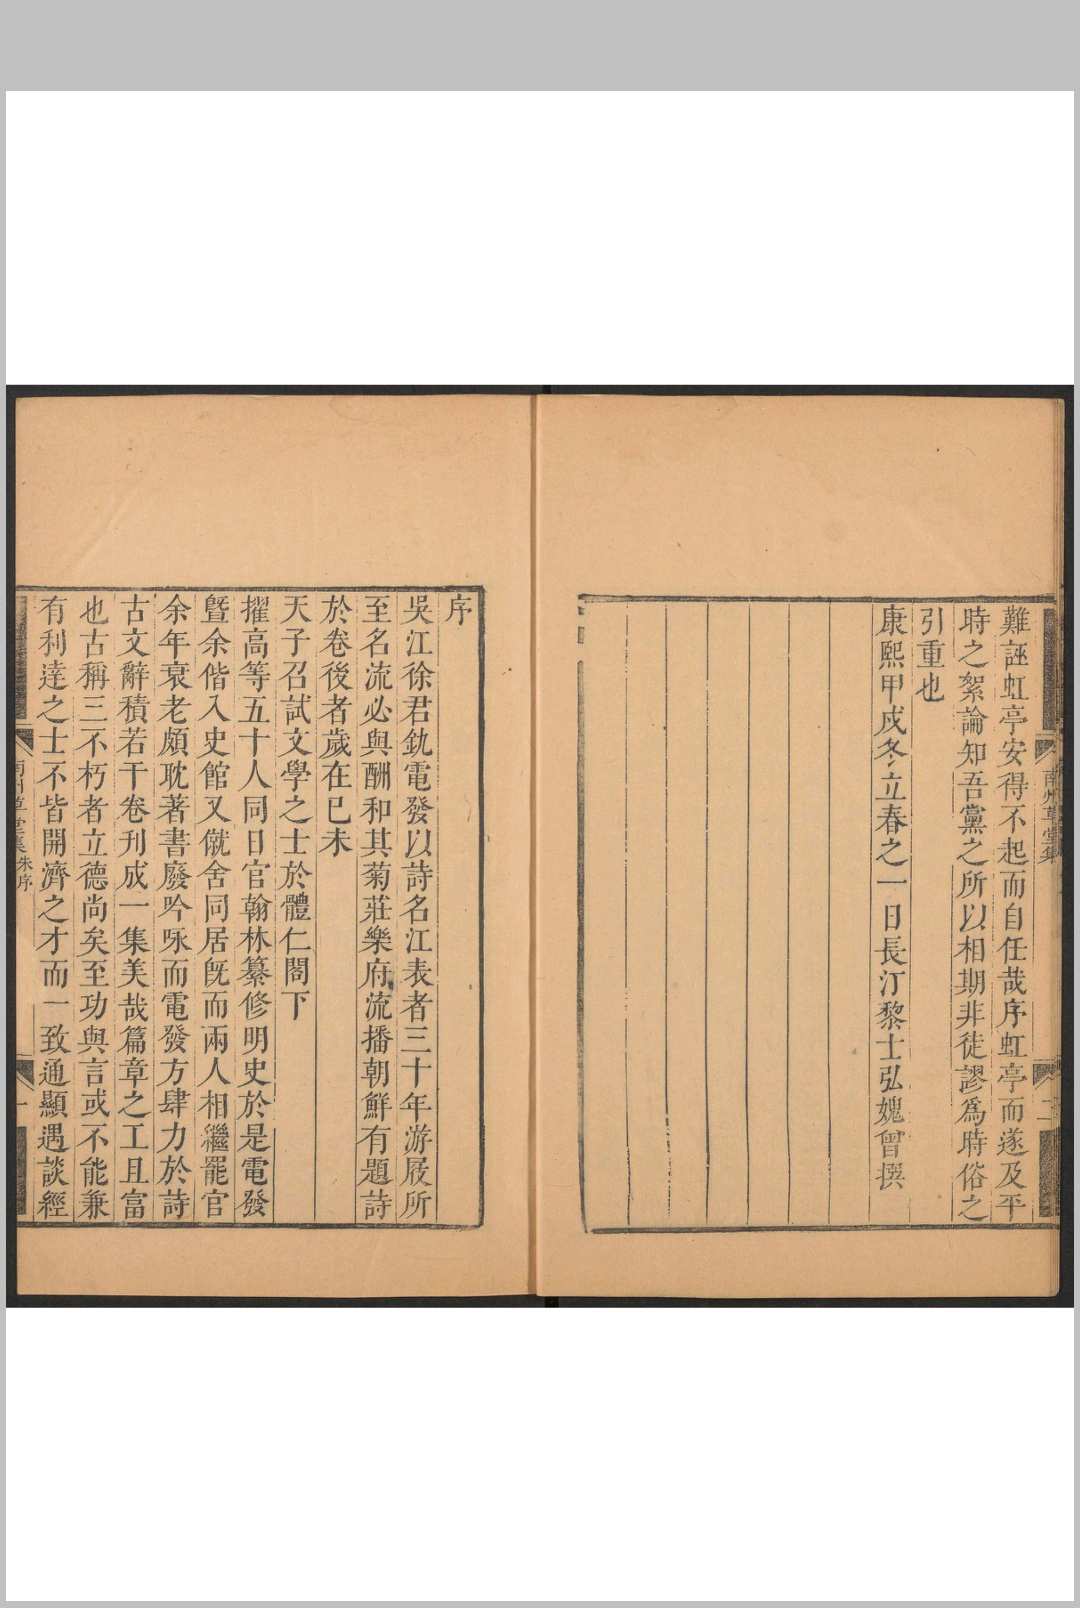 南州草堂集
二
難誣虹亭安得不起而自任哉序虹亭而遂及平
時之絮論知吾黨之所以相期非徒謬爲時俗之
引重也
康熙甲戌冬立春之一日長汀黎士弘媿曾撰
序
吳江徐君釚電發以詩名江表者三十年游屐所
至名流必與酬和其菊莊樂府流播朝鮮有題詩
於卷後者歲在已未
天子召試文學之士於體仁閣下
擢高等五十人同日官翰林纂修明史於是電發
曁余偕入史館又僦舍同居旣而兩人相繼罷官
余年衰老頗耽著書廢吟咏而電發方肆力於詩
古文辭積若干卷刋成一集美哉篇章之工且富
也古稱三不朽者立德尚矣至功與言或不能兼
有利逹之士不皆開濟之才而一致通顯遇談經
南州草堂集 朱序
一